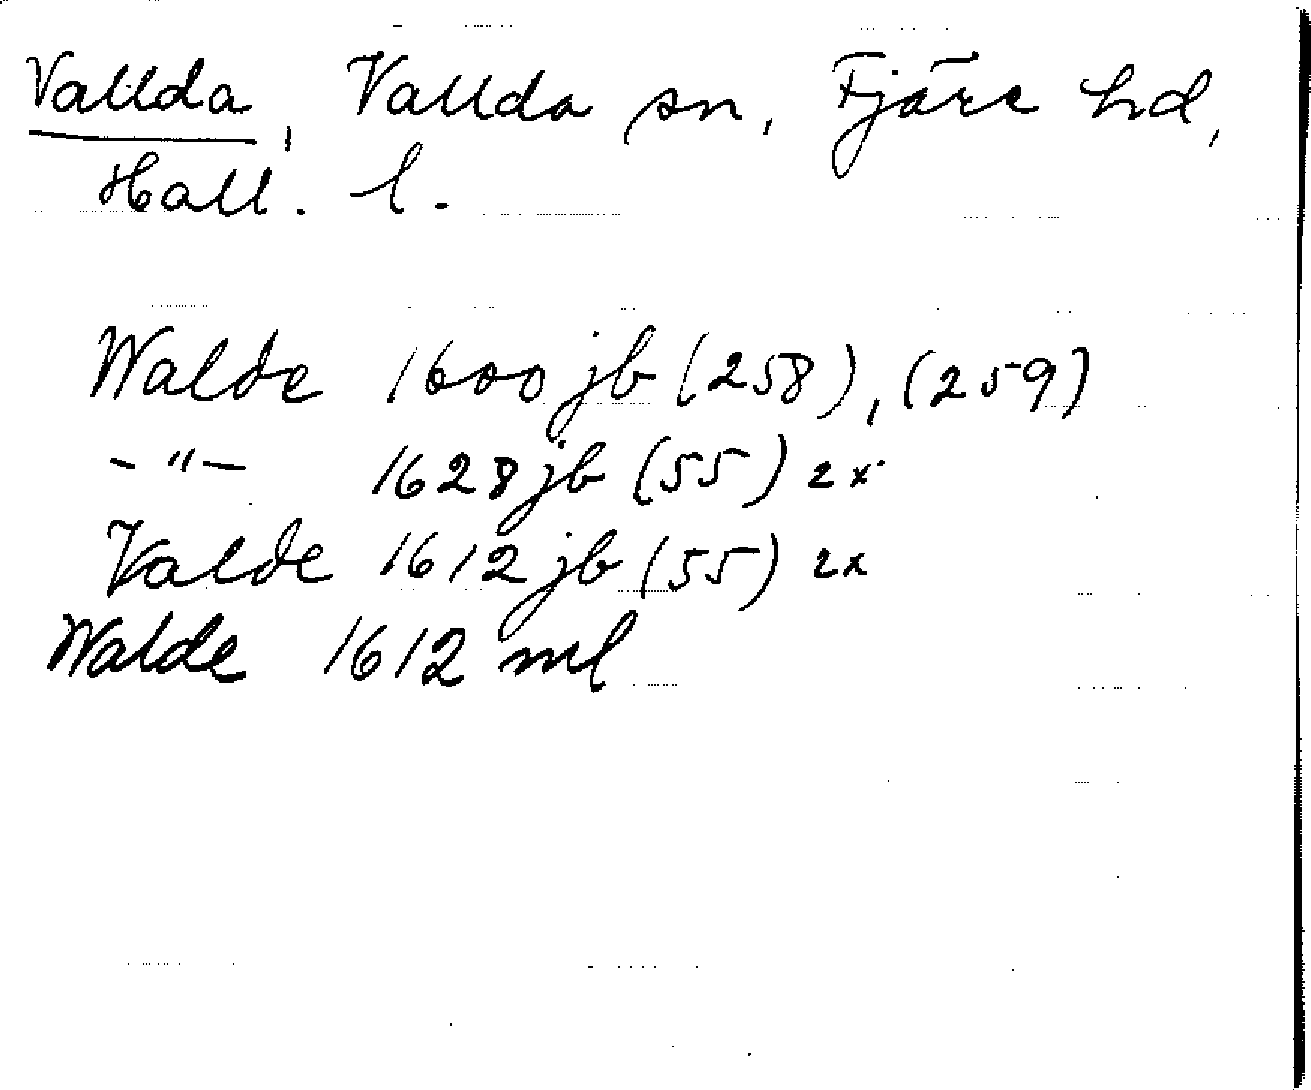 Vallda, Vallda sn, Fjäre hd,
Hall. l.
Walde 1600 jb (258), (259)
-"- 1628 jb (55) 2x
Valde 1612 jb (55) 2x
Walde 1612 ml